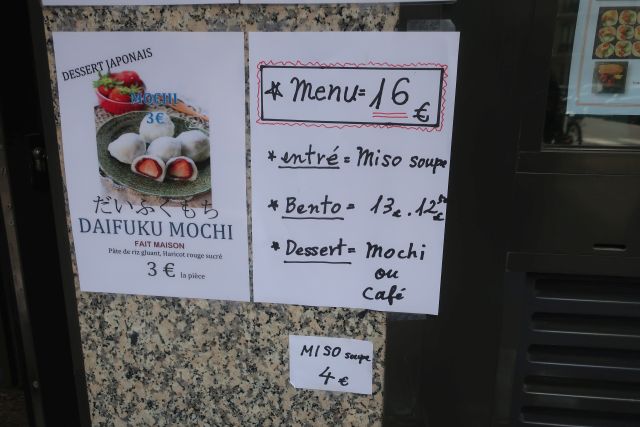 DESSERT JAPONAIS
MOCHI
3€
だいふくもち
DAIFUKU MOCHI
FAIT MAISON
Pâte de riz gluant, Haricot rouge sucré
3 € la pièce
* Menu = 16 €
* entré = Miso soupe
* Bento = 13€. 12,50€
* Dessert = Mochi
ou
Café
MISO soupe
4 €